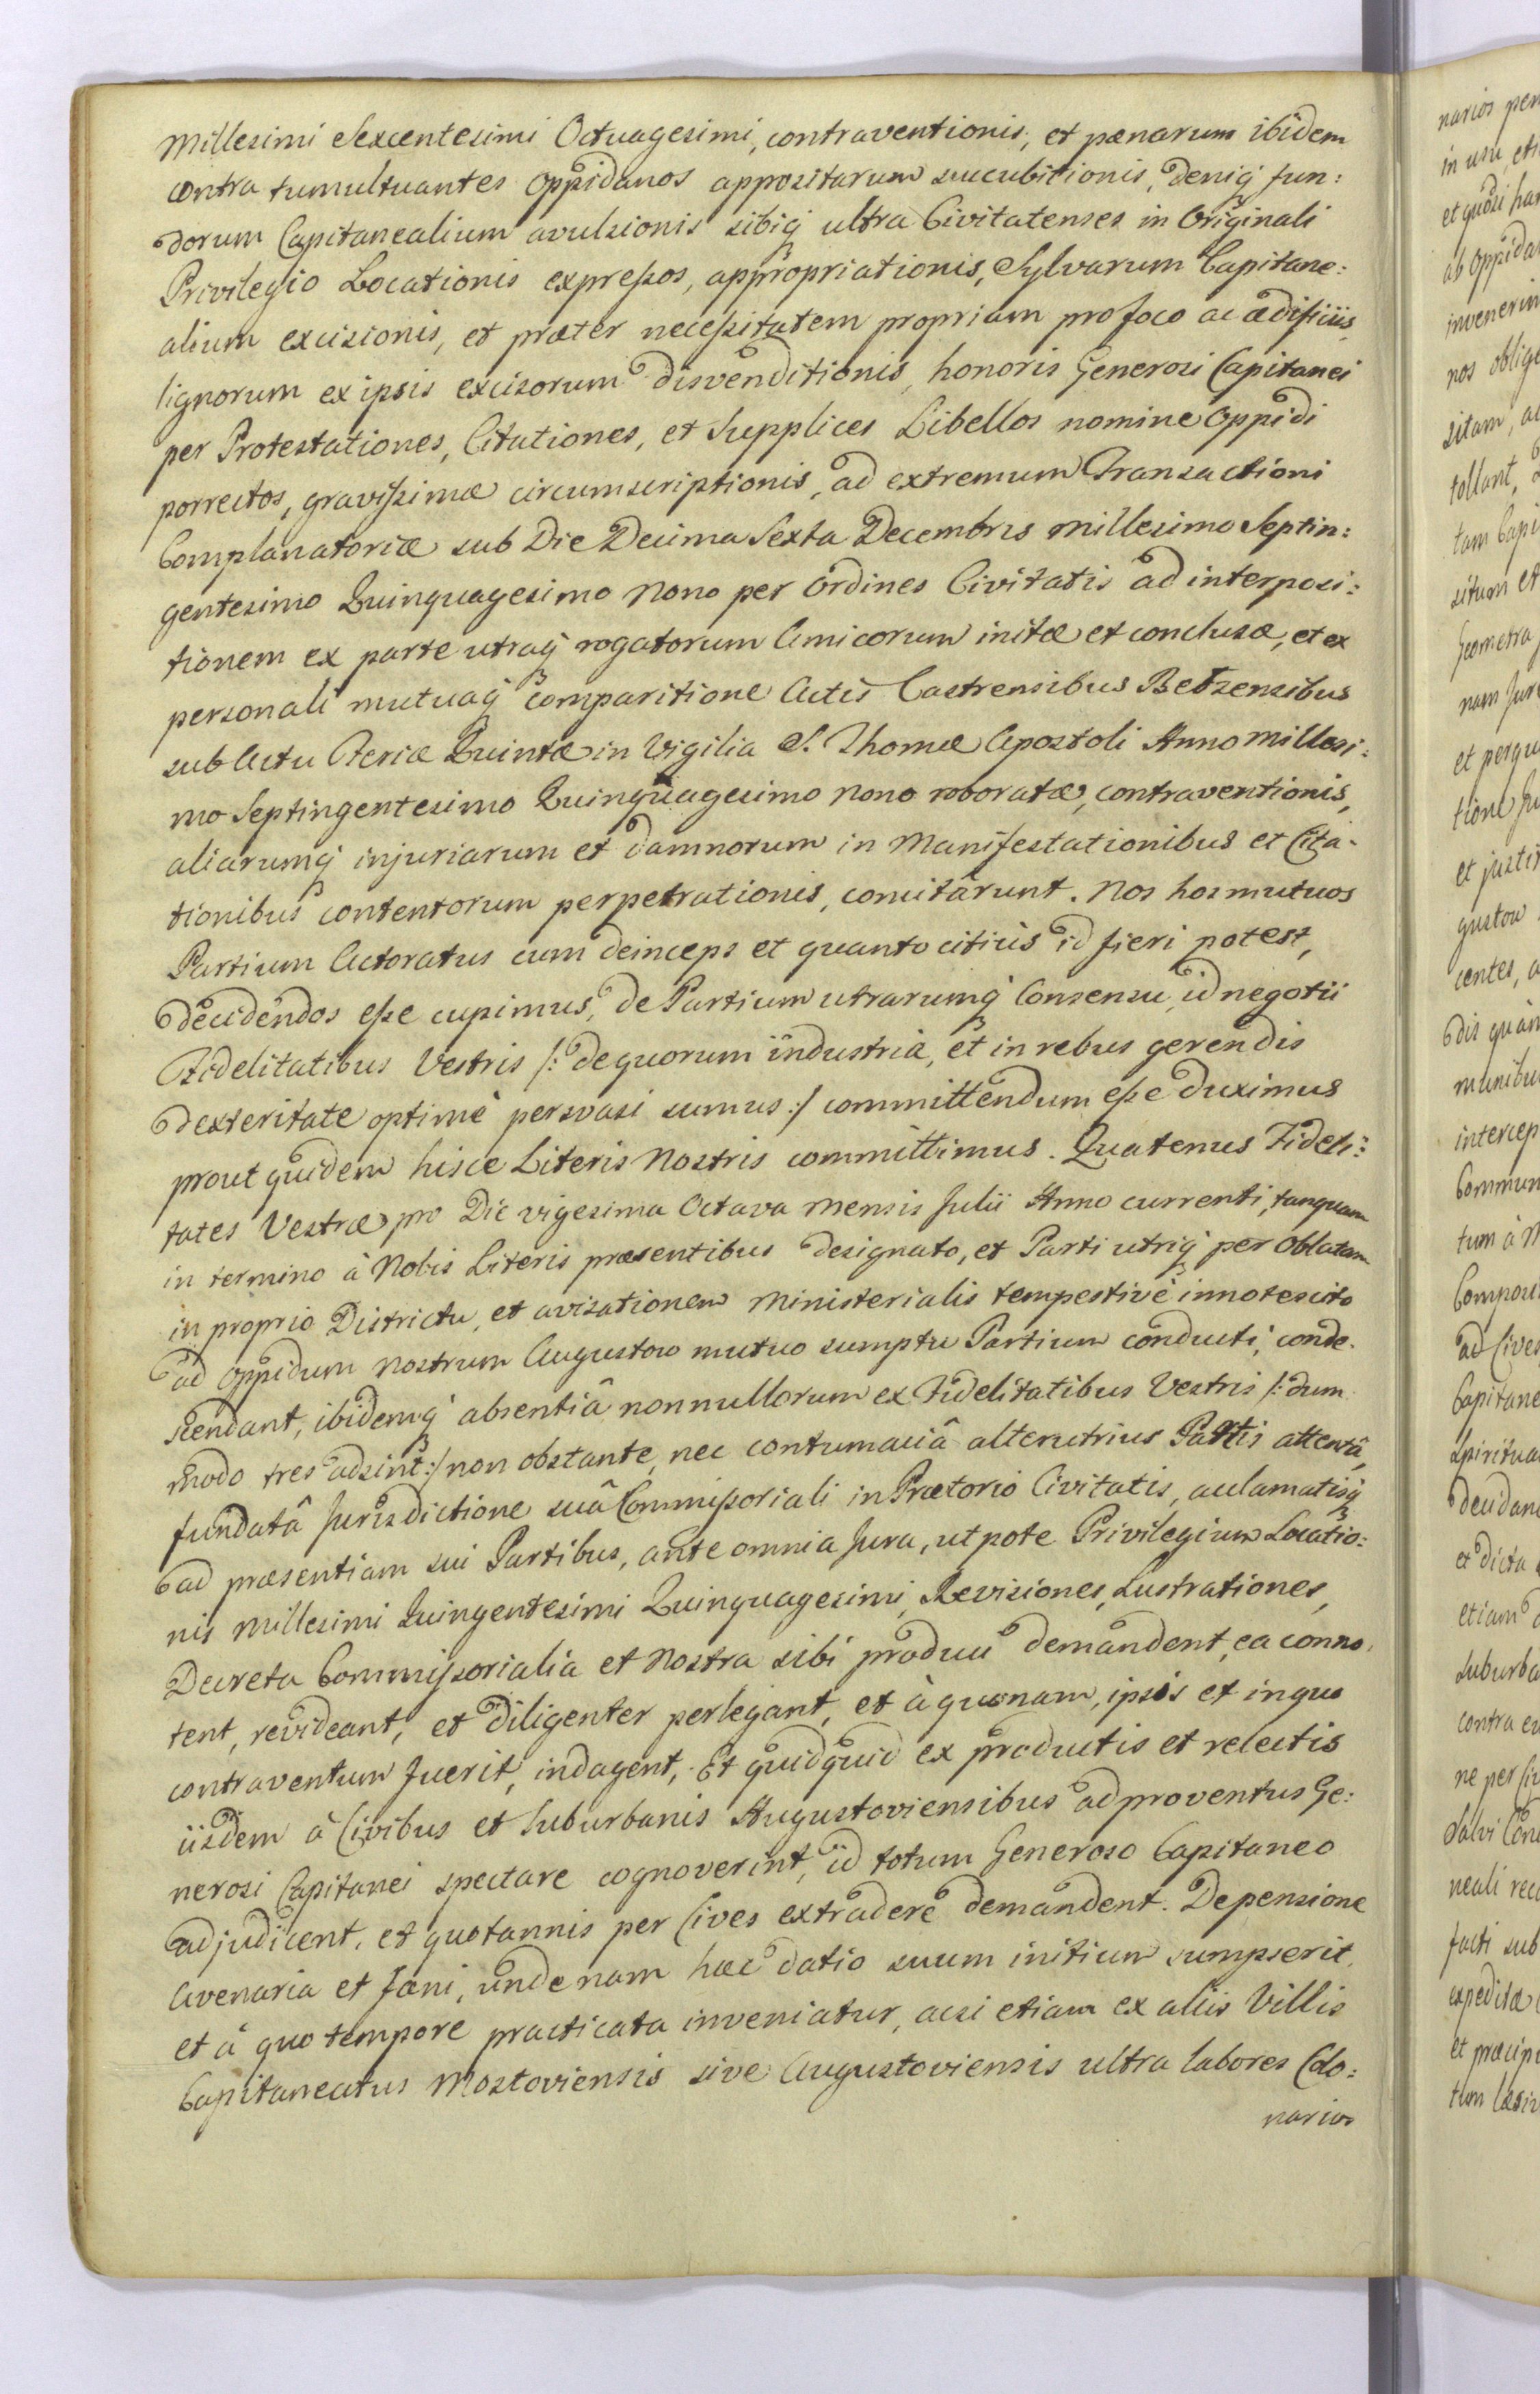 Millesimi Sexcentesimi Octuagesimi, contraventionis, et pænarum ibidem
contra tumultuantes Oppidanos appositarum succubitionis, deniq́ʒ fun:
dorum Capitanealium avulsionis sibiq́ʒ ultra Civitatenses in Originali
Privilegio Locationis expreßos, appropriationis, Sylvarum Capitane:
alium excisionis, et præter neceßitatem propriam pro foco ac ædificiis
lignorum ex ipsis excisorum disvenditionis, honoris Generosi Capitanei
per Protestationes, Citationes, et Supplices Libellos nomine Oppidi
porrectos, gravißimæ circumscriptionis, ad extremum Transactioni
Complanatoriæ sub Die Decima Sexta Decembris Millesimo Septin:
gentesimo Quinquagesimo Nono per Ordines Civitatis ad interposi:
tionem ex parte utraq́ʒ rogatorum Amicorum initæ et conclusæ, et ex
personali mutuaq́ʒ comparitione Actis Castrensibus Betzensibus
sub Actu Feriæ Quintæ in Vigilia S. Thomæ Apostoli Anno Millesi:
mo Septingentesimo Quinquagesimo Nono roboratæ, contraventionis,
aliarumq́ʒ injuriarum et damnorum in Manifestationibus et Cita-
tionibus contentorum perpetrationis, comitârunt. Nos hos mutuos
Partium Actoratus cum deinceps et quanto citiùs id fieri potest,
decidendos eße cupimus, de Partium utrarumq́ʒ Consensu, id negotii
Fidelitatibus Vestris /: de quorum industriâ, et in rebus gerendis
dexteritate optimè persvasi sumus :/ committendum eße duximus
prout quidem hisce Literis Nostris committimus. Quatenus Fideli:
tates Vestræ pro Die vigesima Octava Mensis Julii Anno currenti, tanquam
in termino à Nobis Literis præsentibus designato, et Parti utriq́ʒ per Oblatam
in proprio Districtu, et avisationem Ministerialis tempestivè innotescito
ad Oppidum Nostrum Augustow mutuo sumptu Partium conducti, conde-
scendant, ibidemq́ʒ absentiâ nonnullorum ex Fidelitatibus Vestris /: dum
modo tres adsint :/ non obstante, nec contumaciâ alterutrius Partis attentâ,
fundatâ Jurisdictione suâ Commißoriali in Prætorio Civitatis, acclamatisq́ʒ
ad præsentiam sui Partibus, ante omnia Jura, utpote Privilegium Locatio:
nis Millesimi Quingentesimi Quinquagesimi, Revisiones, Lustrationes,
Decreta Commißorialia et Nostra sibi produci demandent, ea conno.
tent, revideant, et diligenter perlegant, et à quonam, ipsis et in quo
contraventum fuerit, indagent, Et quidquid ex productis et relectis
iisdem à Civibus et Suburbanis Augustoviensibus ad proventus Ge:
nerosi Capitanei spectare cognoverint, id totum Generoso Capitaneo
adjudicent, et quotannis per Cives extradere demandent. De pensione
Avenaria et Fæni, unde nam hæc datio suum initium sumpserit,
et à quo tempore practicata inveniatur, acsi etiam ex aliis Villis
Capitaneatus Mostoviensis sive Augustoviensis ultra labores Colo:
narios
narios pen
in usu, eti
et quasi har
ab Oppida
invenerin
nos oblige
sitam, ac
tollant,
tam Capi
situm et
Geometra
nam Jure
et perqu
tione Ju
et justi
gustow
centes, a
dis quàm
munibu
intercep
Commun
tum à N
Compos
ad Cives
Capitane
Spiritua
decidan
et dicta
etiam
Suburba
contra eu
ne per Ci
Salvi Con
neali reco
facti sub
expedita
et præcip
tum